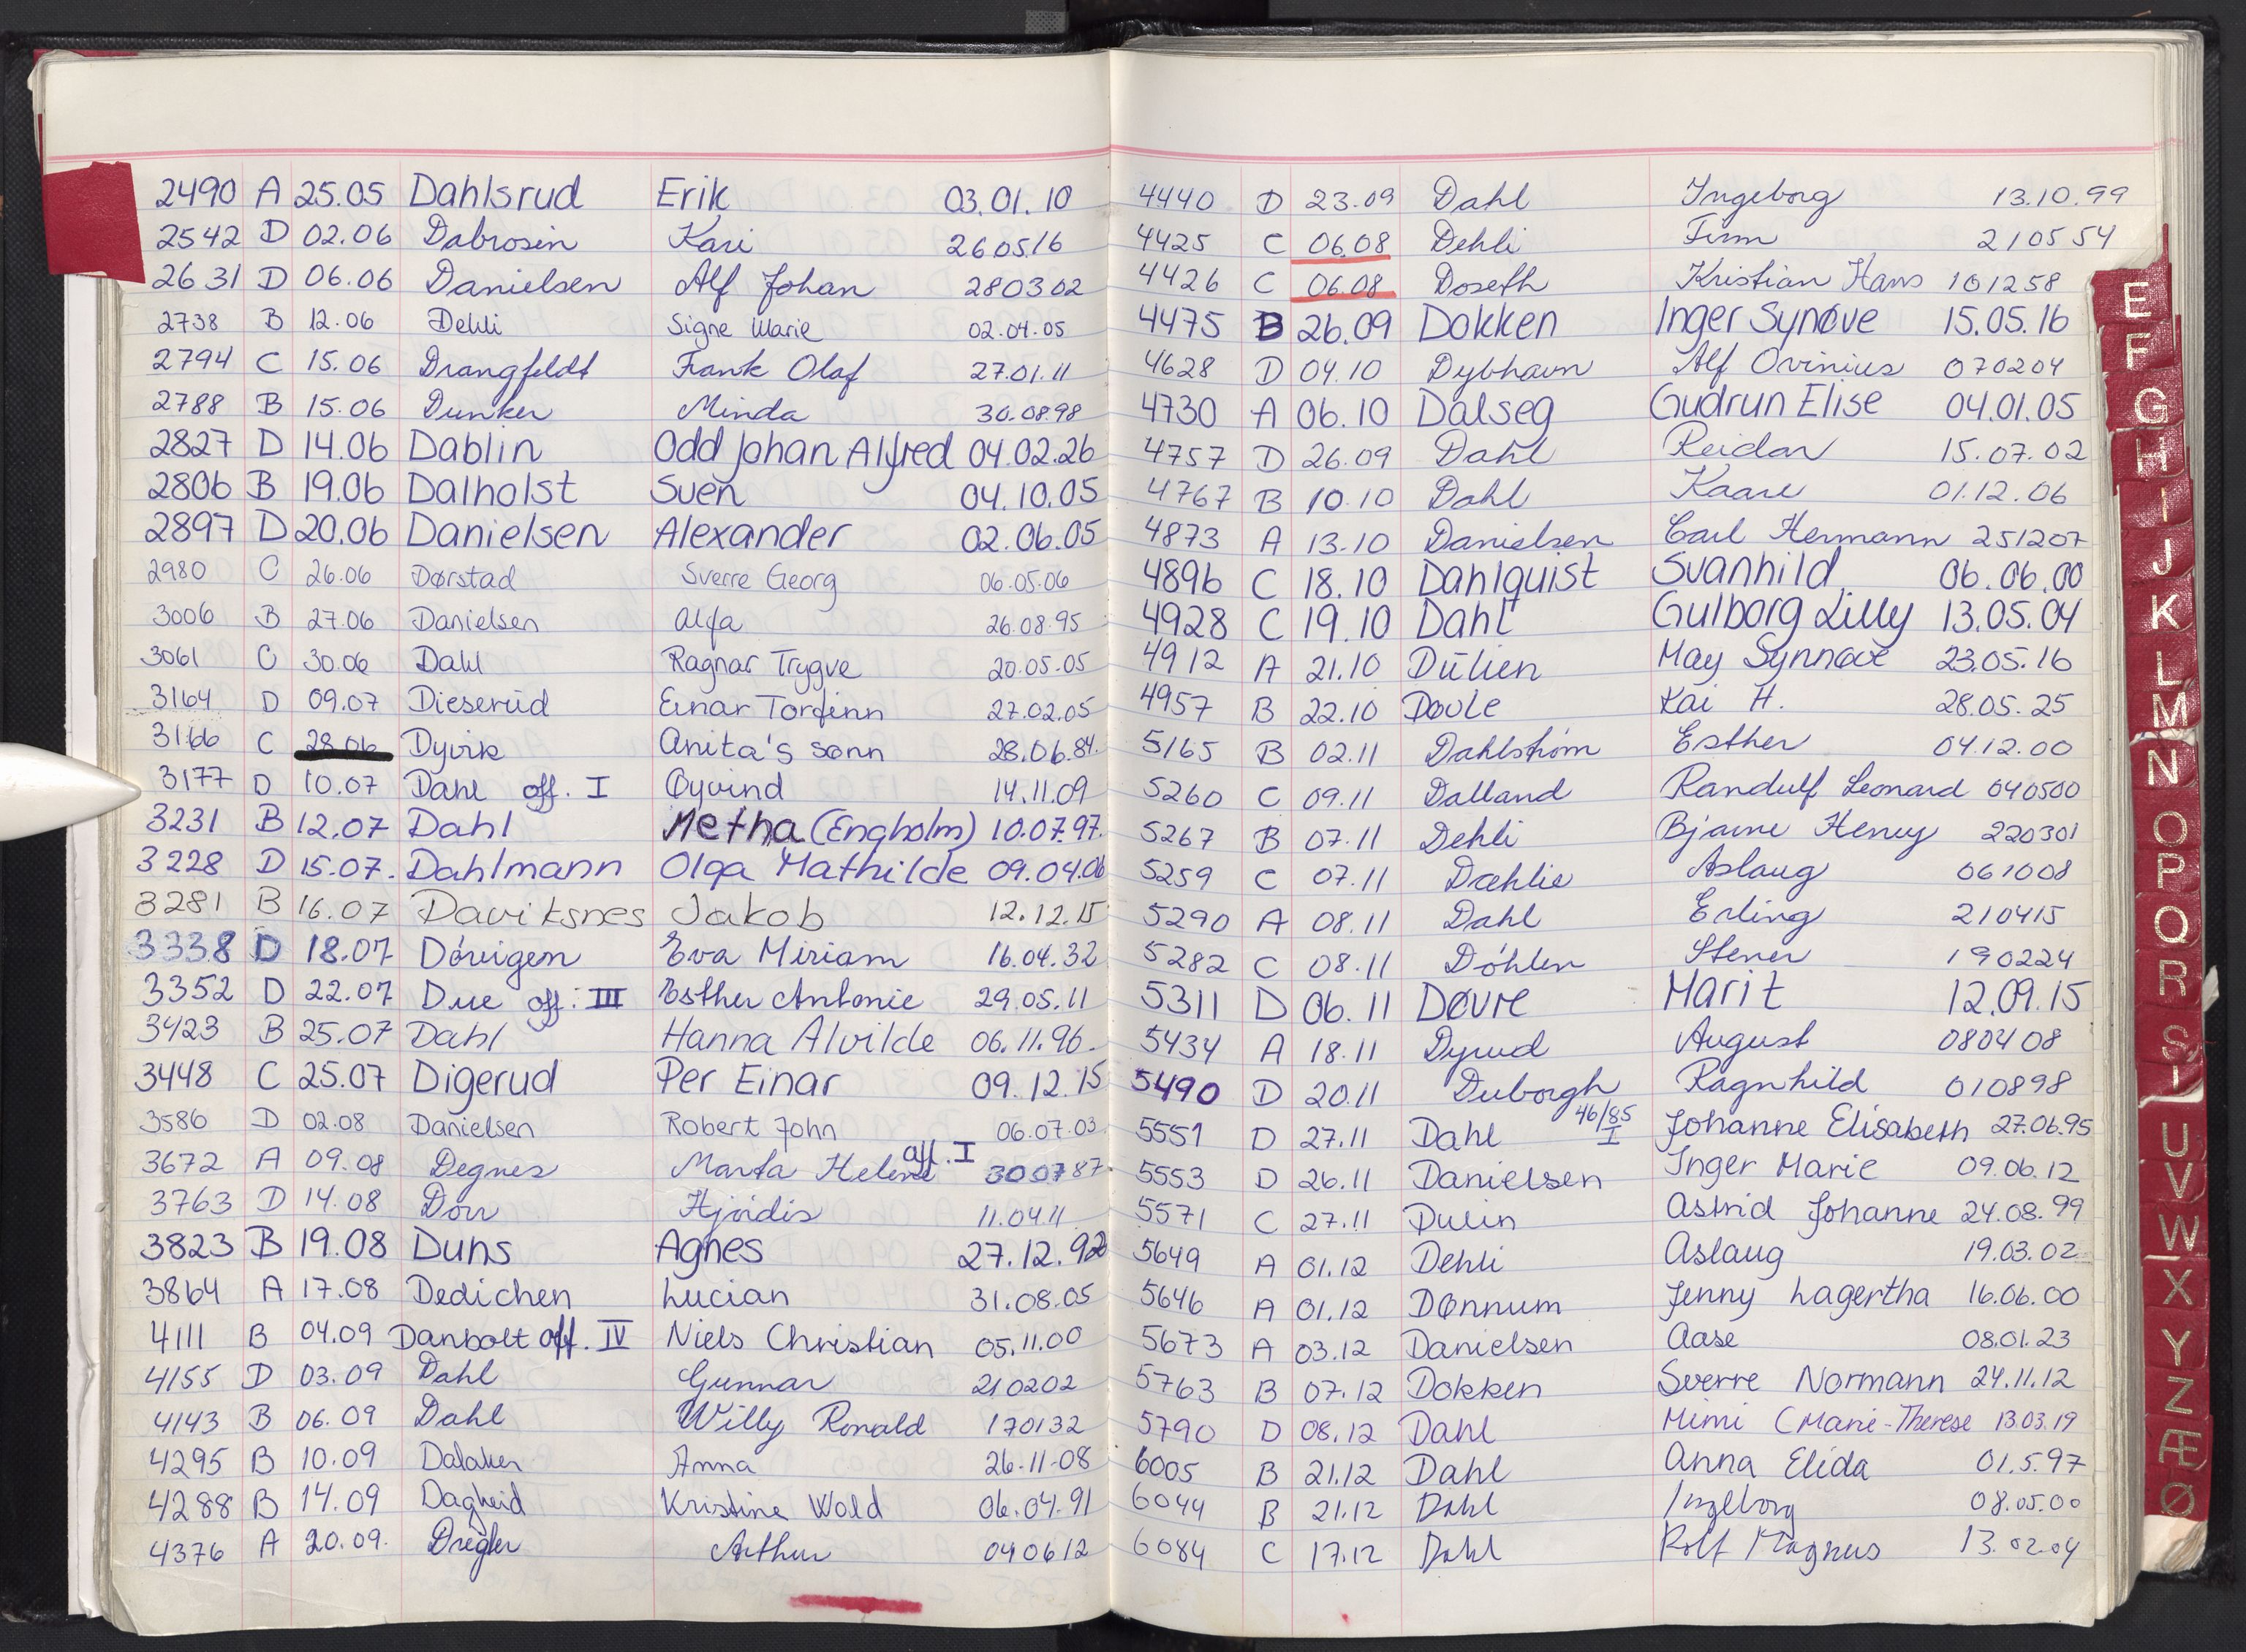 2490 A 25.05 Dahlsrud Erik 03.01.10
2542 D 02.06 Dabrosin Kari 260516
2631 D 06.06 Danielsen Alf Johan 280302
2738 B 12.06 Dehli Signe Marie 02.04.05
2794 C 15.06 Drangfeldt Frank Olaf 27.01.11
2788 B 15.06 Dunker Minda 30.08.98
2827 D 14.06 Dablin Odd Johan Alfred 04.02.26
2806 B 19.06 Dalholst Sven 04.10.05
2897 D 20.06 Danielsen Alexander 02.06.05
2980 C 26.06 Dørstad Sverre Georg 06.05.06
3006 B 27.06 Danielsen Alfa 26.08.95
3061 C 30.06 Dahl Ragnar Trygve 20.05.05
3164 D 09.07 Dieserud Einar Torfinn 27.02.05
3166 C 28.06 Dyvik Anita's sønn 28.06.84.
3177 D 10.07 Dahl off. I Øyvind 14.11.09
3231 B 12.07 Dahl Metha (Engholm) 10.07.97.
3228 D 15.07. Dahlmann Olga Mathilde 09.04.06
3281 B 16.07 Daviksnes Jakob 12.12.15
3338 D 18.07 Dövigen Eva Miriam 16.04.32
3352 D 22.07 Due off. III Esther Antonie 29.05.11
3423 B 25.07 Dahl Hanna Alvilde 06.11.96.
3448 C 25.07 Digerud Per Einar 09.12.15
3586 D 02.08 Danielsen Robert John 06.07.03
3672 A 09.08 Degnes Marta Helene off. I 300787
3763 D 14.08 Hjördis 11.0411
3823 B 19.08 Duns Agnes 27.12.92
3864 A 17.08 Dedichen Lucian 31.08.05
4111 B 04.09 Danbolt off. IV Niels Christian 05.11.00
4155 D 03.09 Dahl Gunnar 210202
4143 B 06.09 Dahl Willy Ronald 170132
4295 B 10.09 Dalaker Anna 26-11-08
4288 B 14.09 Dagheid Kristine Wold 06.04.91
4376 A 20.09. Dregler Arthur 040612
4440 D 23.09 Dahl Ingeborg 13.10.99
4425 C 06.08 Dehli Finn 210554
4426 C 06.08 Doseth Kristian Hans 101258
4475 B 26.09 Dokken Inger Synøve 15.05.16
4628 D 04.10 Dybhavn Alf Ovinius 070204
4730 A 06.10 Dalseg Gudrun Elise 04.01.05
4757 D 26.09 Dahl Reidar 15.07.02
4767 B 10.10 Dahl Kaare 01.12.06
4873 A 13.10 Danielsen Carl Hermann 251207
4896 C 18.10 Dahlquist Svanhild 06.06.00
4928 C 19.10 Dahl Gulborg Lilly 13.05.04
4912 A 21.10 Dulien May Synnøve 23.05.16
4957 B 22.10 Dovle Kai H. 28.05.25
5165 B 02.11 Dahlstrøm Esther 04.12.00
5260 C 09.11 Dalland Randulf Leonard 040500
5267 B 07.11 Dehli Bjarne Henry 220301
5259 C 07.11 Dæhlie Aslaug 061008
5290 A 08.11 Dahl Erling 210415
5282 C 08.11 Döhlen Stener 190224
5311 D 06.11 Døvre Marit 12.09.15
5434 A 18.11 Dyrud August 080408
5490 D 20.11 Duborgh Ragnhild 010898
5551 D 27.11 Dahl 46/85 I Johanne Elisabeth 27.06.95
5553 D 26.11 Danielsen Inger Marie 09.06.12
5571 C 27.11 Dulin Astrid Johanne 24.08.99
5649 A 01.12 Dehli Aslaug 19.03.02
5646 A 01.12 Dønnum Jenny Lagertha 16.06.00
5673 A 03.12 Danielsen Aase 08.01.23
5763 B 07.12 Dokken Sverre Normann 24.11.12
5790 D 08.12 Dahl Mimi (Marie-Therese 13.03.19
6005 B 21.12 Dahl Anna Elida 01.5.97
6044 B 21.12 Dahl Ingeborg 08.05.00
6084 C 17.12 Dahl Rolf Magnus 13.02.04
E
F
G
H
I
J
K
L
M
N
O
P
Q
R
S
U
V
W
X
Y
Z
Æ
Ø